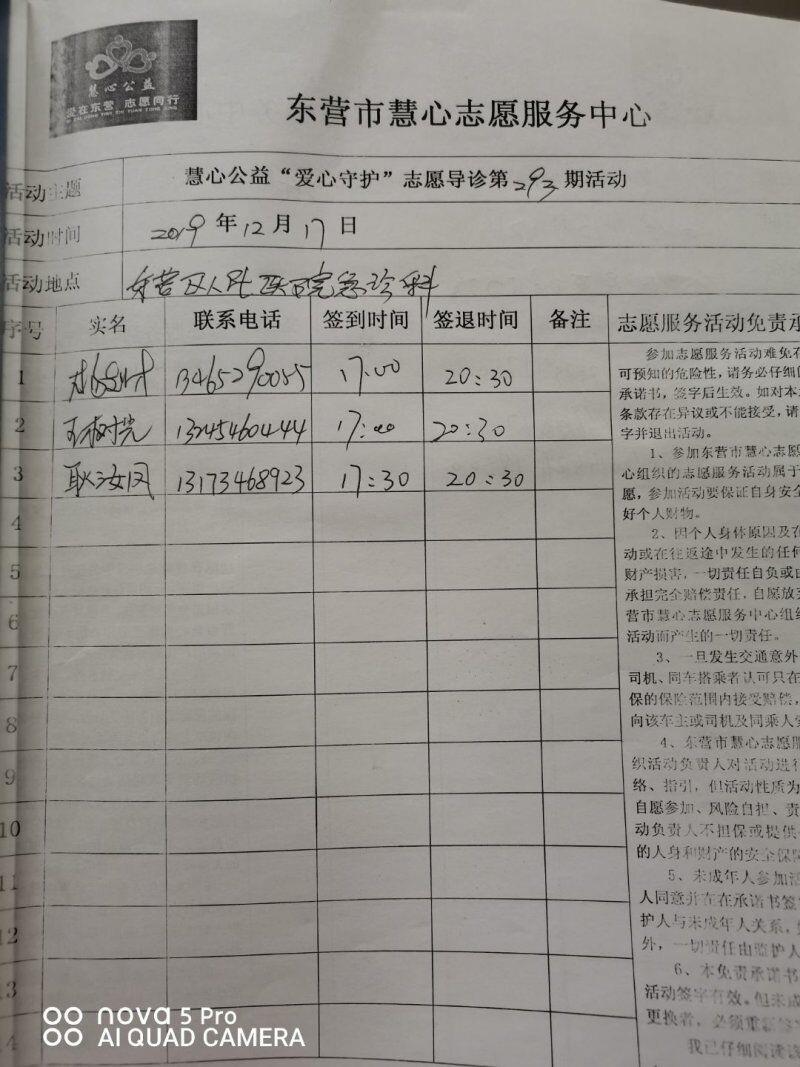 慧心公益
爱在东营 志愿同行
东营市慧心志愿服务中心
活动主题 慧心公益“爱心守护”志愿导诊第293期活动
活动时间 2019年12月17日
活动地点 东营区人民医院急诊科
序号 实名 联系电话 签到时间 签退时间 备注 志愿服务活动免责承
1 13465290055 17:00 20:30
2 13245460444 17:00 20:30
3 耿汝凤 13173468923 17:30 20:30
4
5
6
7
8
9
10
11
12
13
14
参加志愿服务活动难免存
可预知的危险性，请务必仔细阅
承诺书，签字后生效。如对本
条款存在异议或不能接受，请
字并退出活动。
1、参加东营市慧心志愿
心组织的志愿服务活动属于
愿，参加活动要保证自身安全
好个人财物。
2、因个人身体原因及在
动或在往返途中发生的任何
财产损害，一切责任自负或由
承担完全赔偿责任，自愿放弃
营市慧心志愿服务中心组织
活动而产生的一切责任。
3、一旦发生交通意外
司机、同车搭乘者认可只在
保的保险范围内接受赔偿，
向该车主或司机及同乘人
4、东营市慧心志愿服
织活动负责人对活动进行
络、指引，但活动性质为
自愿参加、风险自担、责
动负责人不担保或提供
的人身和财产的安全保障
5、未成年人参加活
人同意并在在承诺书签
护人与未成年人关系，
外，一切责任由监护人
6、本免责承诺书
活动签字有效。但未成
更换者，必须重新签
我已仔细阅读该
nova 5 Pro
AI QUAD CAMERA